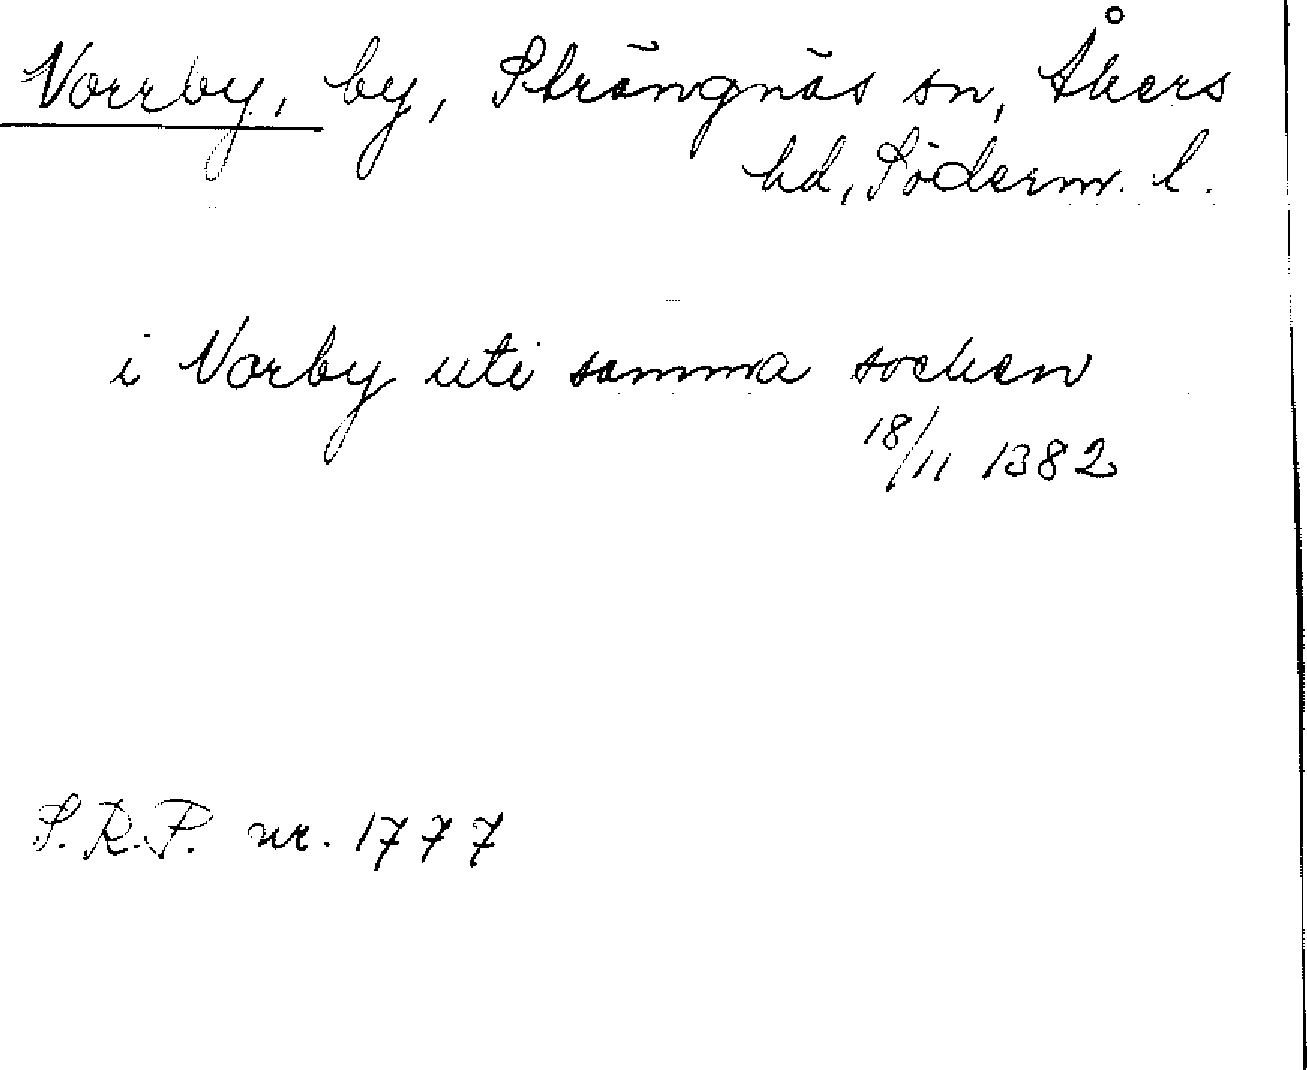 Norrby, by, Strängnäs sn, Åkers
hd, Söderm. l.
i Norby uti samma socken
18/11 1382
S.R.P. nr. 1777